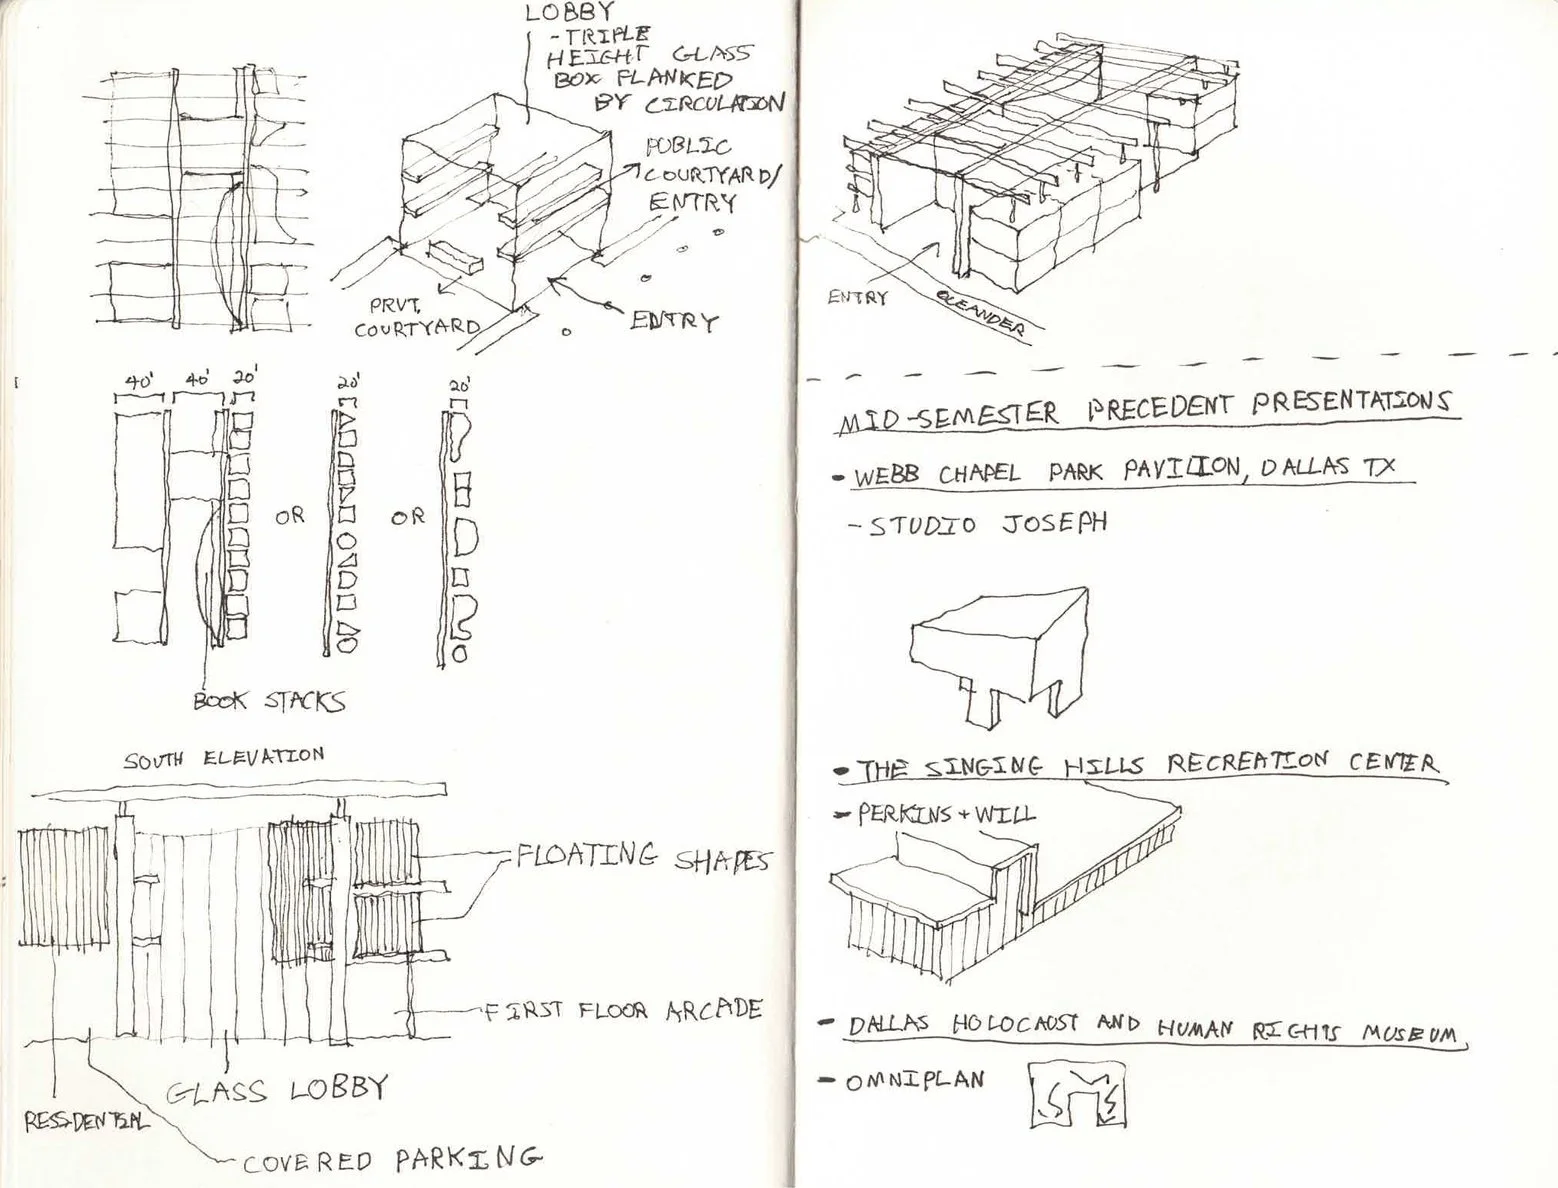 LOBBY
-TRIPLE
HEIGHT GLASS
BOX FLANKED
BY CIRCULATION
PUBLIC
COURTYARD/
ENTRY
PRVT.
COURTYARD
ENTRY
40' 40' 20' 20' 20'
OR OR
BOOK STACKS
SOUTH ELEVATION
FLOATING SHAPES
FIRST FLOOR ARCADE
GLASS LOBBY
RESIDENTIAL
COVERED PARKING
ENTRY
OLEANDER
MID-SEMESTER PRECEDENT PRESENTATIONS
- WEBB CHAPEL PARK PAVILION, DALLAS TX
- STUDIO JOSEPH
• THE SINGING HILLS RECREATION CENTER
- PERKINS + WILL
- DALLAS HOLOCAUST AND HUMAN RIGHTS MUSEUM,
- OMNIPLAN